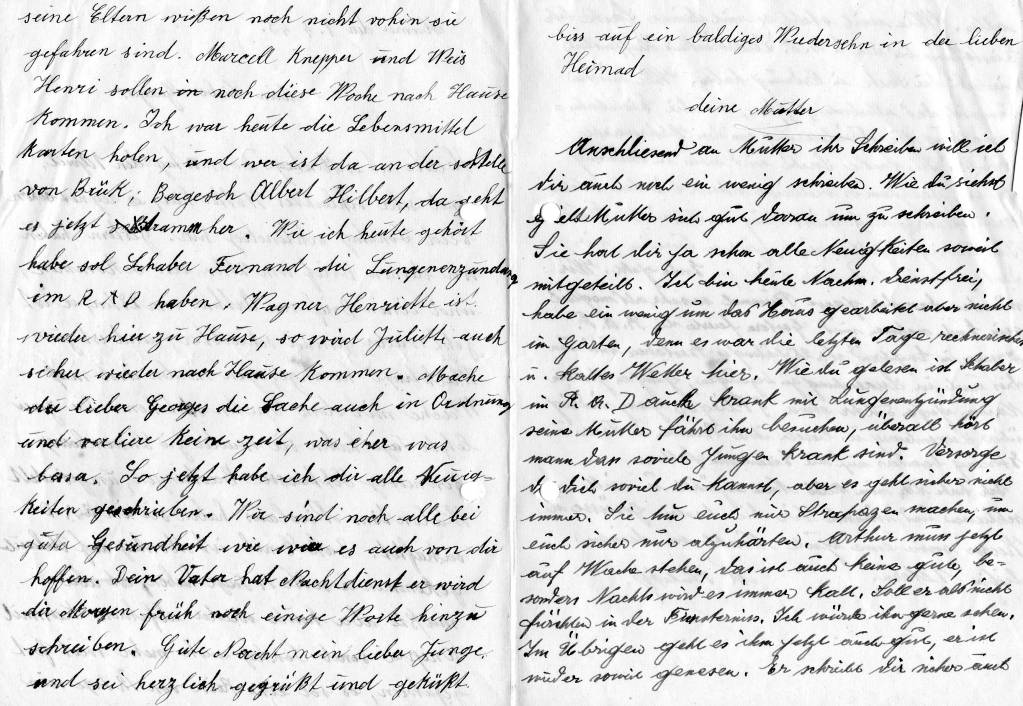 seine Eltern wießen noch nicht vohin sie
gefahren sind. Marcell Knepper und Weis
Henri sollen in noch diese Woche nach Hause
kommen. Ich war heute die Lebensmittel
karten holen, und wer ist da an der stelle
von Brük; Bergesch Albert Hilbert, da geht
es jetzt stramm her. Wie ich heute gehört
habe sol Schaber Fernand die Lungenenzundung
im R A D haben. Wagner Henriette ist
wieder hier zu Hause, so wird Juliette auch
sicher wieder nach Hause kommen. Mache
du lieber Georges die Sache auch in Ordnung
und verliere keine zeit, was eher was
bessa. So jetzt habe ich dir alle Neuig-
keiten geschrieben. Wir sind noch alle bei
guta Gesundheit wie wir es auch von dir
hoffen. Dein Vater hat Nachtdienst er wird
dir Morgen früh noch einige Worte hinzu
schreiben. Gute Nacht mein lieber Junge.
und sei herzlich gegrüßt und geküßt
biss auf ein baldiges Wiedersehn in der lieben
Heimad
deine Mutter
Anschliesend an Mutter ihr Schreiben will ich
dir auch noch ein wenig schreiben. Wie du siehst
Mutter sich gut daran um zu schreiben.
Sie hat dir ja schon alle Neuigkeiten soweit
mitgeteilt. Ich bin heute Nachm. dienstfrei,
habe ein wenig um das Haus gearbeitet aber nicht
im Garten, denn es war die letzten Tage regnerisches
u. kaltes Wetter hier. Wie du gelesen ist Schaber
im R. A. D auch krank mit Lungenentzündung
seine Mutter fährt ihn besuchen, überall hört
mann das soviele Jungen krank sind. Versorge
d. dich soviel du kannst, aber es geht sicher nicht
immer. Sie tun euch nur Strapazen machen, um
euch sicher nur abzuhärten. Arthur muss jetzt
auf Wache stehen, das ist auch keine gute, be-
sonders Nachts wird es immer kalt. Soll er als nicht
fürchten in der Finsterniss. Ich würde ihn gerne sehen.
Im Übrigen geht es ihm jetzt auch gut, er ist
wieder soweit genesen. Er schreibt dir sicher auch